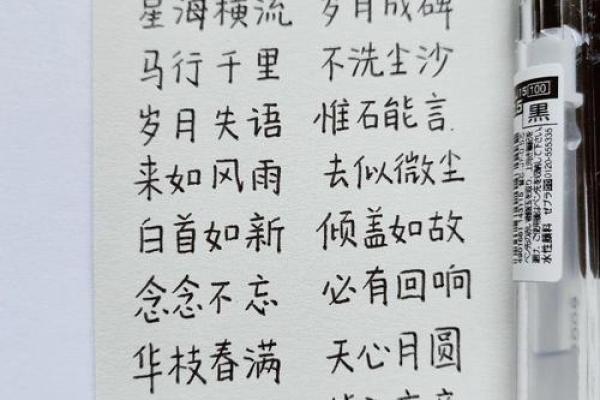 星海横流 岁月成碑
马行千里 不洗尘沙
岁月失语 惟石能言
来如风雨 去似微尘
白首如新 倾盖如故
念念不忘 必有回响
华枝春满 天心月圆
100
黒
水性顔料 ゼブラ
0120-555335